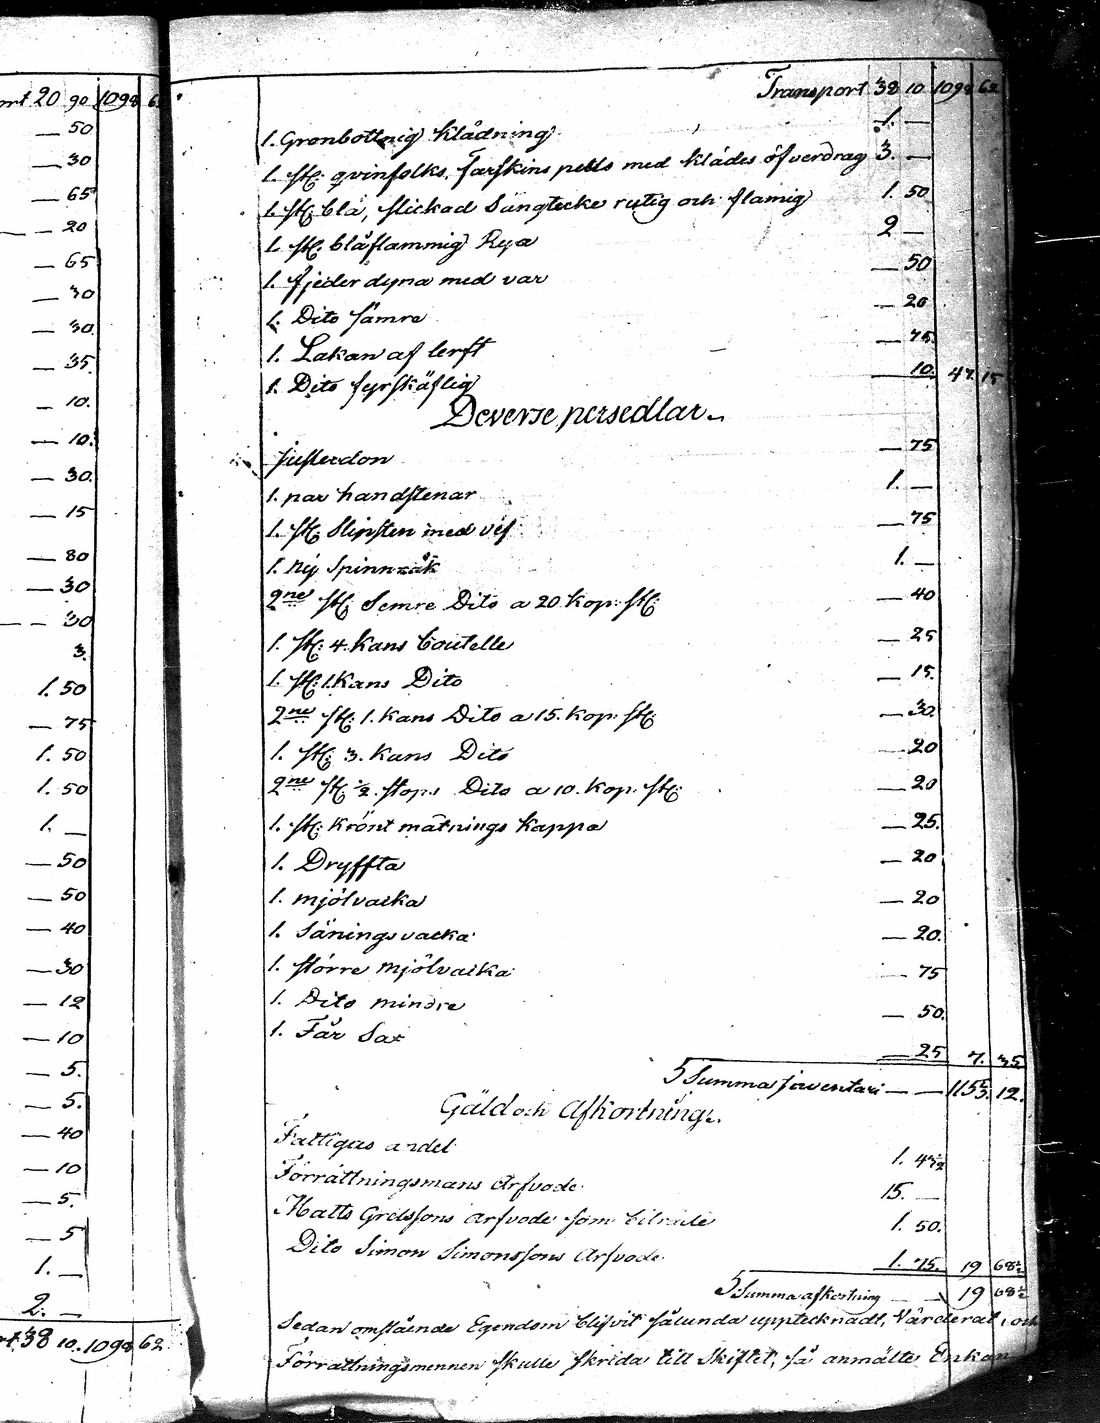 ort 20 90 1098 62
— 50
— 30
— 65
— — 20
— 65
— 30
— 30.
— 35.
— 10.
— 10.
— 30.
— 15
— 80
— 30
— — 30
3.
1. 50
— 75
1. 50
1. 50
1. —
— 50
— 50
— 40
— 30
— 12
— 10
— 5.
— 5.
— 40
— 10
— 5.
— 5
1. —
2. —
rt. 38 10. 1098 62.
Transport 38 10 1098 62
1. Gronbottnig klädning 1. —
1. st: qvinfolks fårskins pells med klädes öfverdrag 3. —
1. st: blå, stickad Sängtecke rutig och flamig 1. 50
1. st: blåflammig Rya 2 —
1. fjeder dyna med var — 50
1. Dito sämre — 20
1. Lakan af lerft — 75.
1. Dito fyrskäftig 10. 47. 15
Deverse persedlar.
— 75
1. par handstenar 1. —
1. st: Slipsten med vef — 75
1. ny Spinnråk 1. —
2ne st: Semre Dito a 20 kop: st: — 40
1. st: 4. kans Boutelle — 25
1. st: 1. kans Dito — 15.
2ne st: 1. kans Dito a 15. kop: st: — 30.
1. st: 3. kans Dito — 20
2ne st: ½ stops Dito a 10. kop: st: — 20
1. st: krönt mätnings kappa — 25.
1. Dryffta — 20
1. mjölvacka — 20
1. Sänings vacka — 20.
1. större mjölvacka — 75
1. Dito mindre — 50.
1. Får Sax — 25 7. 35
Summa inventari — — 1153 12.
Gäld och Afkortning.
Fattigas andel 1. 43½
Förrättningsmans Arfvode 15. —
Matts Grelssons arfvode som biträde 1. 50.
Dito Simon Simonssons Arfvode 1. 75. 19 68½
Summa afkortning — 19 68½
Sedan omstående Egendom blifvit sålunda upptecknadt, Värderat, och
Förrättningsmennen skulle skrida till skiftet, så anmälte Enkan